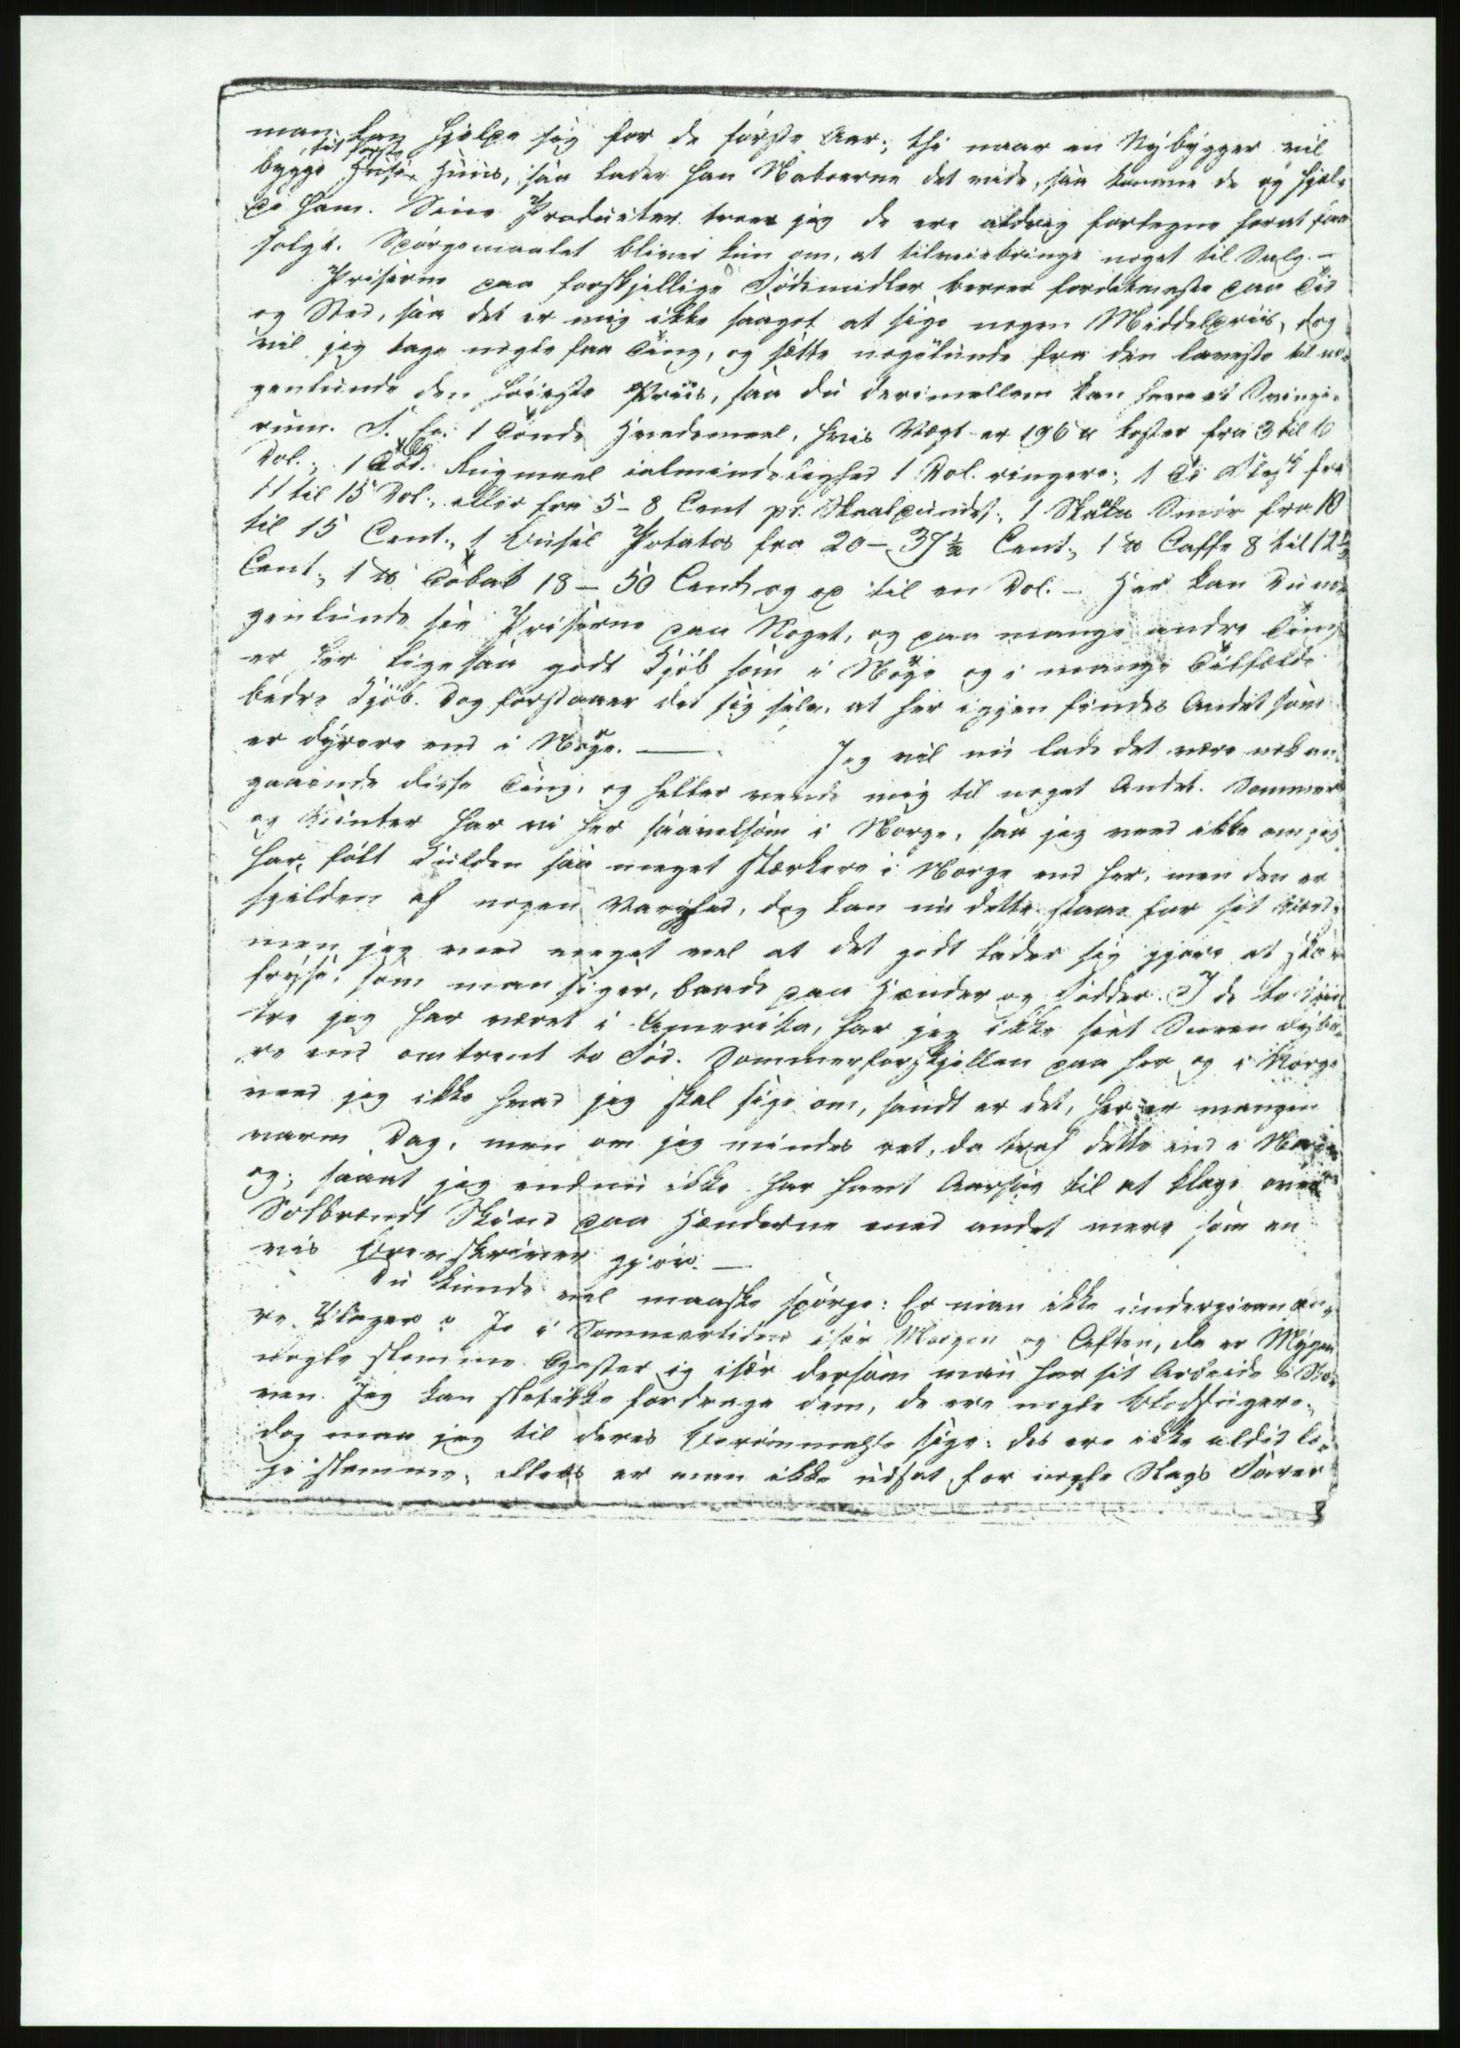 man kan hjelpe sig for de første Aar; thi naar en Nybygger vil
til første
bygge Huser Huus, saa lader han Naboerne det vide, saa komme de og hjel-
pe ham. Sine Producter troer jeg de ere aldrig forlegne forat faa
solgt. Spørgsmaalet bliver kun om, at tilveiebringe noget til Salg. -
Priserne paa forskjellige Födemidler beroer fordetmeste paa Tid
og Sted, saa det er mig ikke saagot at sige nogen Middelpriis, dog
vil jeg tage nogle faa Ting, og sætte nogölunde fra den laveste til no-
genlunde den höieste Priis, saa du derimellem kan have et Svinge-
rum. F. Ex. 1 Tönde Hvedemeel, hvis Vægt er 196 ℔ koster fra 3 til 10
Dol., 1 Töd. Rugmeel ialmindelighed 1 Dol. ringere; 1 Tö Flesk fra
11 til 15 Dol., eller fra 5 - 8 Cent pr. Skaalpundet; 1 Skålℓ Smör fra 10
til 15 Cent., 1 Busel Potatos fra 20 - 37½ Cent., 1 ℔ Caffe 8 til 12½
Cent., 1 ℔ Tobak 18 - 50 Cent og op til en Dol. - Her kan Du no-
genlunde see Priserne paa Noget, og paa mange andre Ting
er her ligesaa godt Kjöb som i Noge og i mange Tilfælde
bedre Kjöb. Dog forstaaer det sig selv, at her igjen findes Andet som
er dyrere end i Noge. — Jeg vil nu lade det være nok an-
gaaende disse Ting, og heller vende mig til noget Andet. Sommer
og Vinter har vi her saavelsom i Norge, saa jeg veed ikke om jeg
har følt Kulden saa meget stærkere i Norge end her, men den er
sjelden af nogen Varighed, dog kan nu dette staae for sit Værd,
men jeg veed meget vel at det godt lader sig gjøre at
fryse, som man siger, baade paa Hænder og Födder. I de to Vin-
tre jeg har været i Amerika, har jeg ikke seet Sneen dybe-
re end omtrent to Fod. Sommerforskjellen paa her og i Norge
veed jeg ikke hvad jeg skal sige om, sandt er det, her er mangen
varm Dag, men om jeg mindes ret, da traf dette ind i Norge
og; saaat jeg endnu ikke har havt Aarsag til at klage over
Solbrændt Skind paa Hænderne med andet mere som en
vis Brevskriver gjör. —
Du kunde vel maaske spörge: Er man ikke undergiven an-
re Plager? Jo i Sommertiden især Morgen og Aften, da er Mygen
nogle slemme Gjester og især dersom man har sit Arbeide i Sko-
ven. Jeg kan sletikke fordrage dem, de ere nogle Blodsugere,
dog maa jeg til deres Berömmelse sige: des ere ikke altid li-
ge slemme, ellers er man ikke udsat for nogle Slags Farer